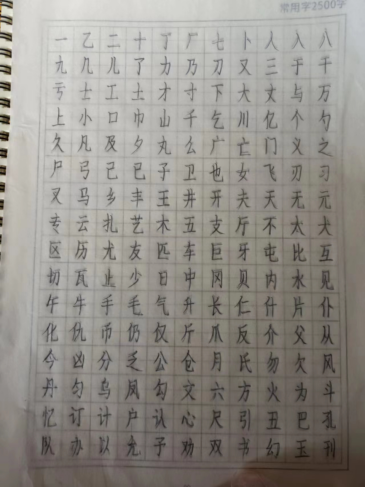 常用字2500字
一 乙 二 十 丁 厂 七 卜 人 入 八
九 几 儿 了 力 乃 刀 又 三 于 干
亏 士 工 土 才 寸 下 大 丈 与 万
上 小 口 巾 山 千 乞 川 亿 个 勺
久 凡 及 夕 丸 么 广 亡 门 义 之
尸 弓 己 已 子 卫 也 女 飞 刃 习
叉 马 乡 丰 王 井 开 夫 天 无 元
专 云 扎 艺 木 五 支 厅 不 太 犬
区 历 尤 友 匹 车 巨 牙 屯 比 互
切 瓦 止 少 日 中 冈 贝 内 水 见
午 牛 手 毛 气 升 长 仁 什 片 仆
化 仇 币 仍 仅 斤 爪 反 介 父 从
今 凶 分 乏 公 仓 月 氏 勿 欠 风
丹 匀 乌 凤 勾 文 六 方 火 为 斗
忆 订 计 户 认 心 尺 引 丑 巴 孔
队 办 以 允 予 劝 双 书 幻 玉 刊